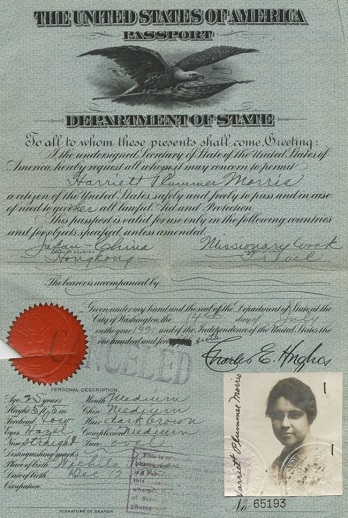 THE UNITED STATES OF AMERICA
PASSPORT
DEPARTMENT OF STATE
To all to whom these presents shall come, Greeting:
I the undersigned Secretary of State of the United States of
America, hereby request all whom it may concern to permit
Harriett Plummer Morris
a citizen of the United States, safely and freely to pass and in case
of need to give her all lawful Aid and Protection.
This passport is valid for use only in the following countries
and for objects specified, unless amended.
Japan - China Missionary work
Hongkong Travel
The bearer is accompanied by
Given under my hand and the seal of the Department of State at the
City of Washington, the
in the year 192 and of the Independence of the United States the
one hundred and
CANCELLED
Charles E. Hughes
PERSONAL DESCRIPTION
Age years Mouth Medium
Height Chin Medium
Forehead low Hair dark brown
Eyes Hazel Complexion Medium
Nose straight Face oval
Distinguishing marks
Place of birth Wichita
Date of birth Dec
Occupation
SIGNATURE OF BEARER
Harriett Plummer Morris
No 65193